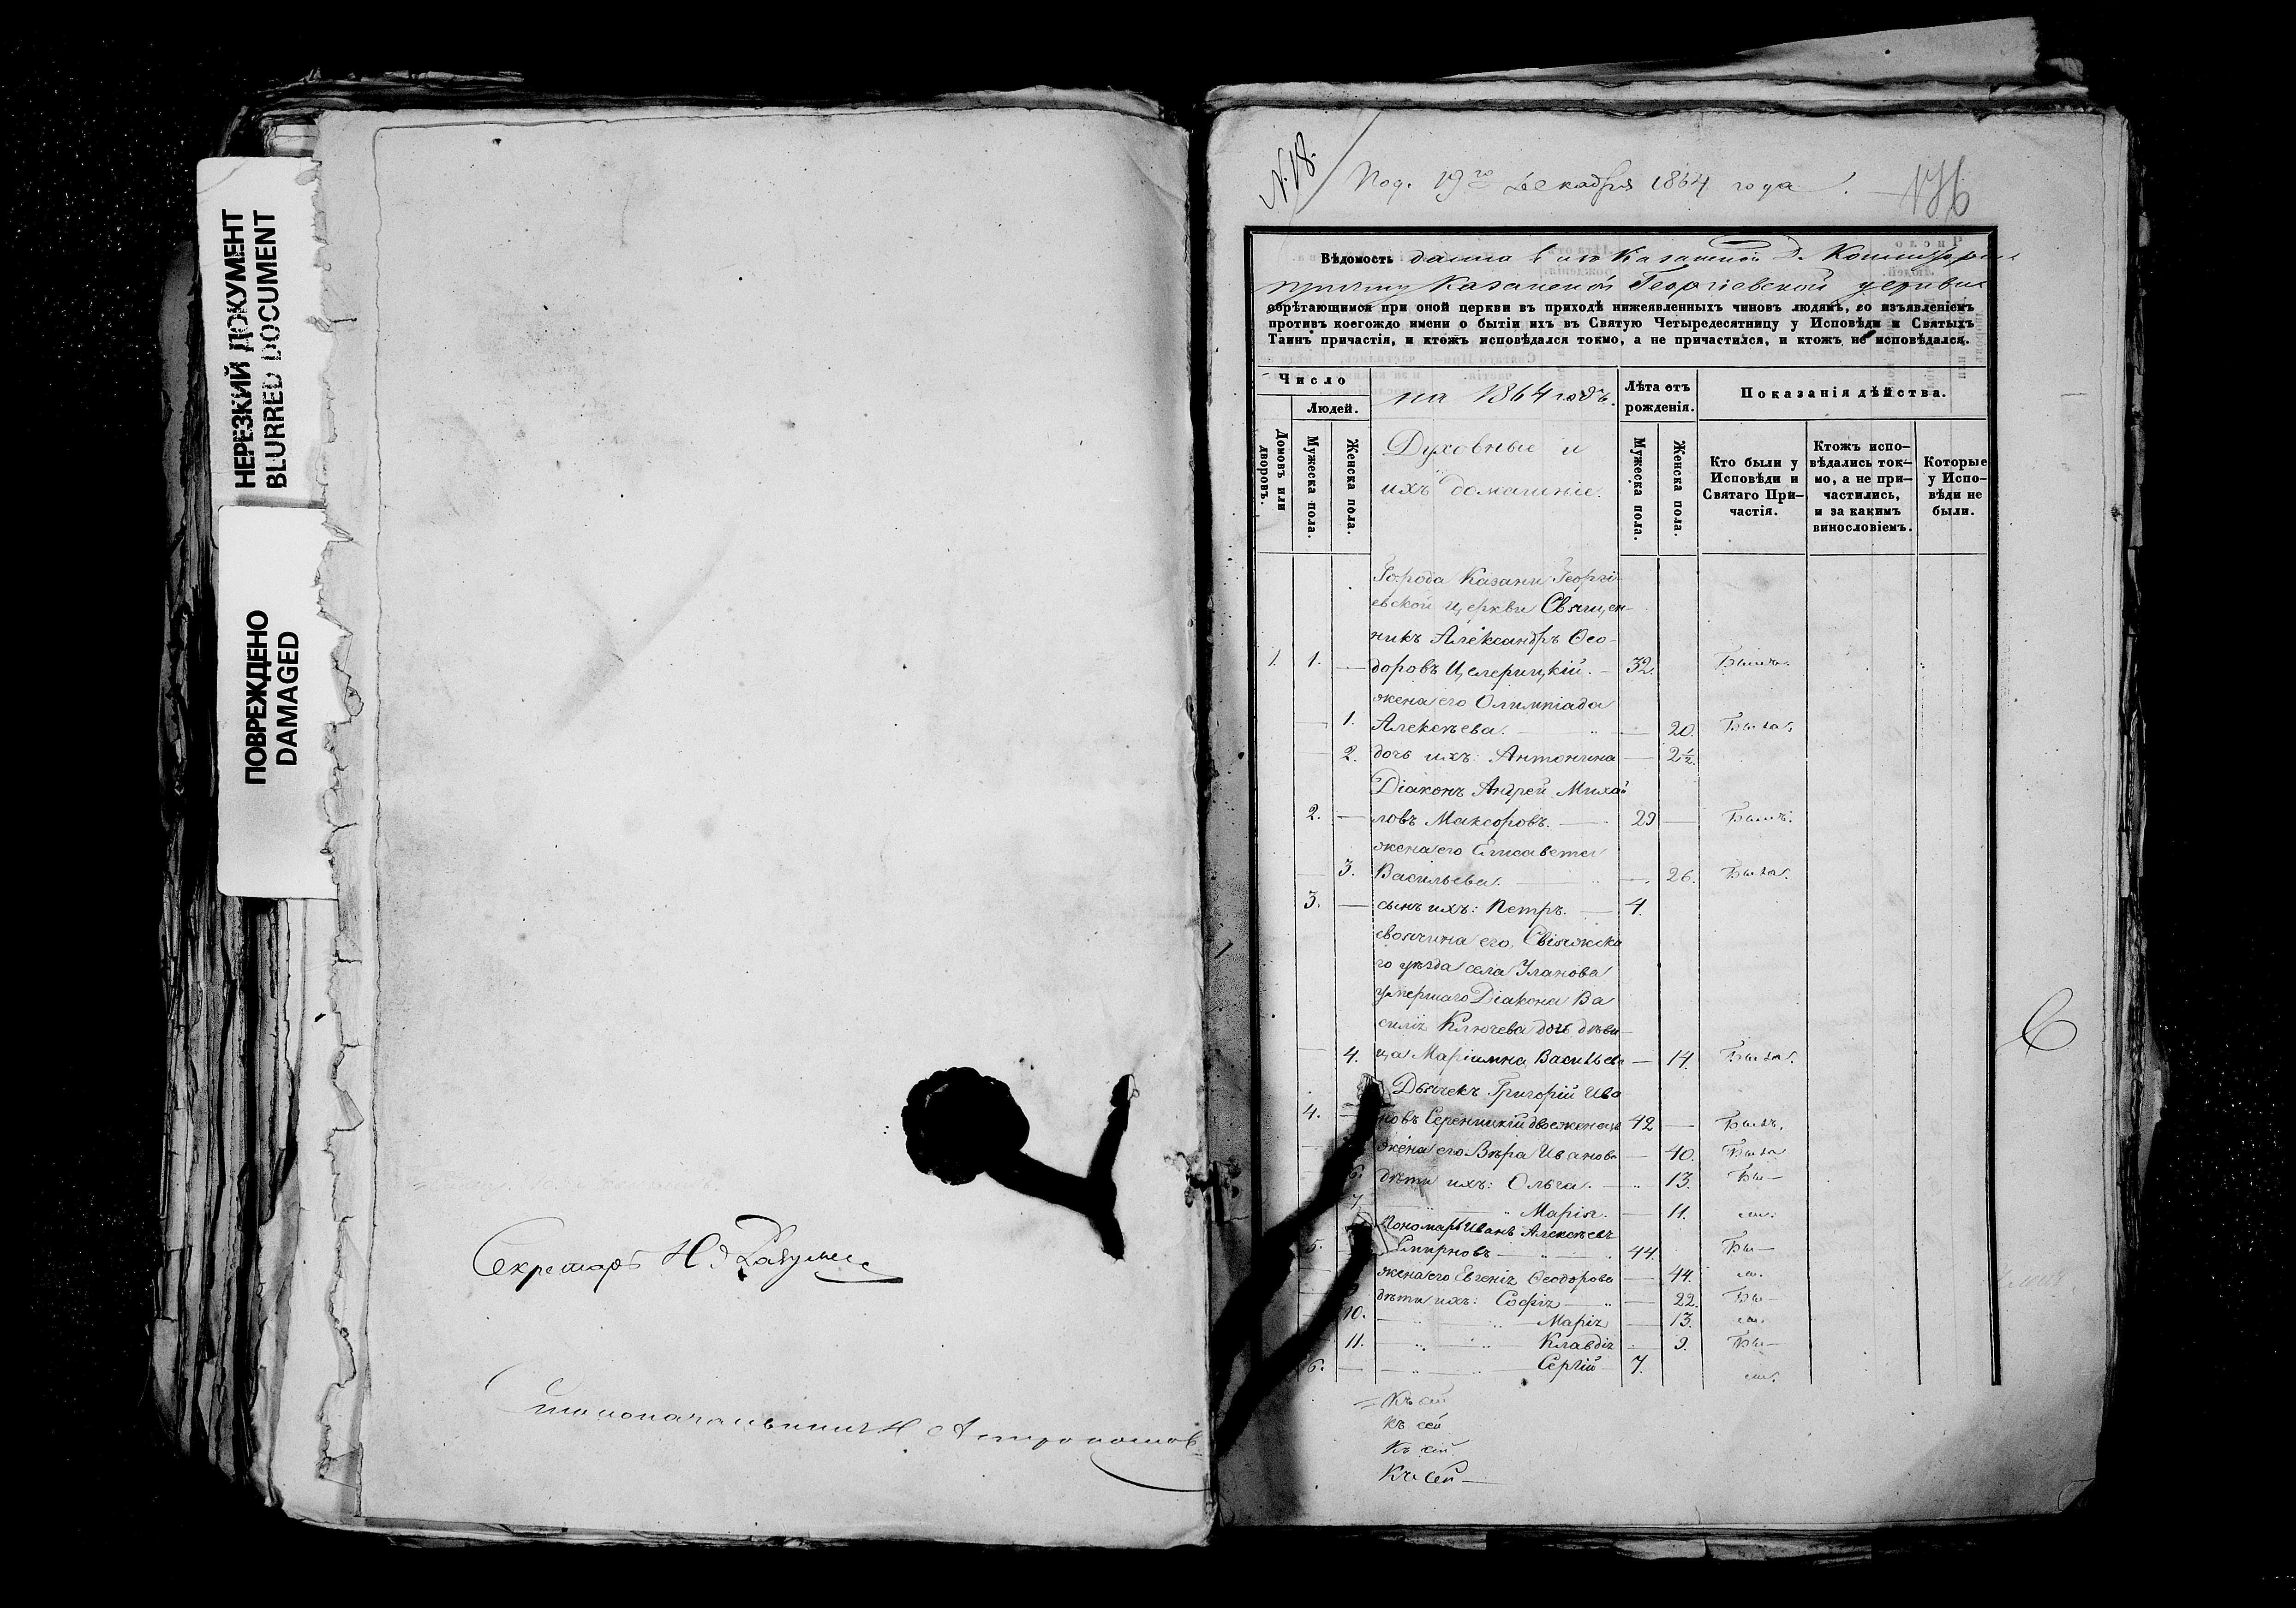 НЕРЕЗКИЙ ДОКУМЕНТ
BLURRED DOCUMENT
ПОВРЕЖДЕНО
DAMAGED
Секретарь Н.
Столоначальникъ
№ 18.
Под. 19го Декабря 1864 года.
176
Вѣдомость дана изъ Казанской Д. Консисторіи
причту Казанской Георгіевской церкви
обрѣтающимся при оной церкви въ приходѣ нижеявленныхъ чиновъ людямъ, со изъявленіемъ
противъ коегождо имени о бытіи ихъ въ Святую Четыредесятницу у Исповѣди и Святыхъ
Таинъ причастія, и ктожъ исповѣдался токмо, а не причастился, и ктожъ не исповѣдался.
Число
Людей.
Домовъ или дворовъ.
Мужеска пола.
Женска пола.
на 1864 годъ.
Духовные и
ихъ домашніе.
Лѣта отъ рожденія.
Мужеска пола.
Женска пола.
Показанія дѣйства.
Кто были у Исповѣди и Святаго Причастія.
Ктожъ исповѣдались токмо, а не причастились, и за какимъ винословіемъ.
Которые у Исповѣди не были.
Города Казани Георгі-
евской церкви Священ-
никъ Александръ Ѳео-
1. 1. — доровъ Целерицкій. — 32. Былъ.
жена его Олимпіада
— 1. Алексѣева. — — 20. Была.
— 2. дочь ихъ: Антонина — 2½.
Діаконъ Андрей Михай
2. — ловъ Максоровъ. — 29 — Былъ.
жена его Елисавета
— 3. Васильева. — — 26. Была.
3. — сынъ ихъ: Петръ. — 4.
своячина его, Свіяжска
го уѣзда села Уланова
умершаго Діакона Ва
силія Ключева дочь дѣви-
— 4. ца Маріамна Васильева — 14. Была.
Дьячекъ Григорій Ива
4. — новъ двоеженецъ 42 — Былъ.
жена его Вѣра Иванова — 40. Была
6. дѣти ихъ: Ольга. — 13. Бы—
7. Марія. — 11. ла.
Пономарь Иванъ Алексѣевъ
5. — Смирновъ — 44. Бы—
жена его Евгенія Ѳеодорова — 44. ла.
дѣти ихъ: Софія — — 22. Бы—
10. Марія — 13. ла.
11. Клавдія — 9. Бы—
6. — Сергій 7. ли.
Къ сей
Къ сей
Къ сей
Къ сей —